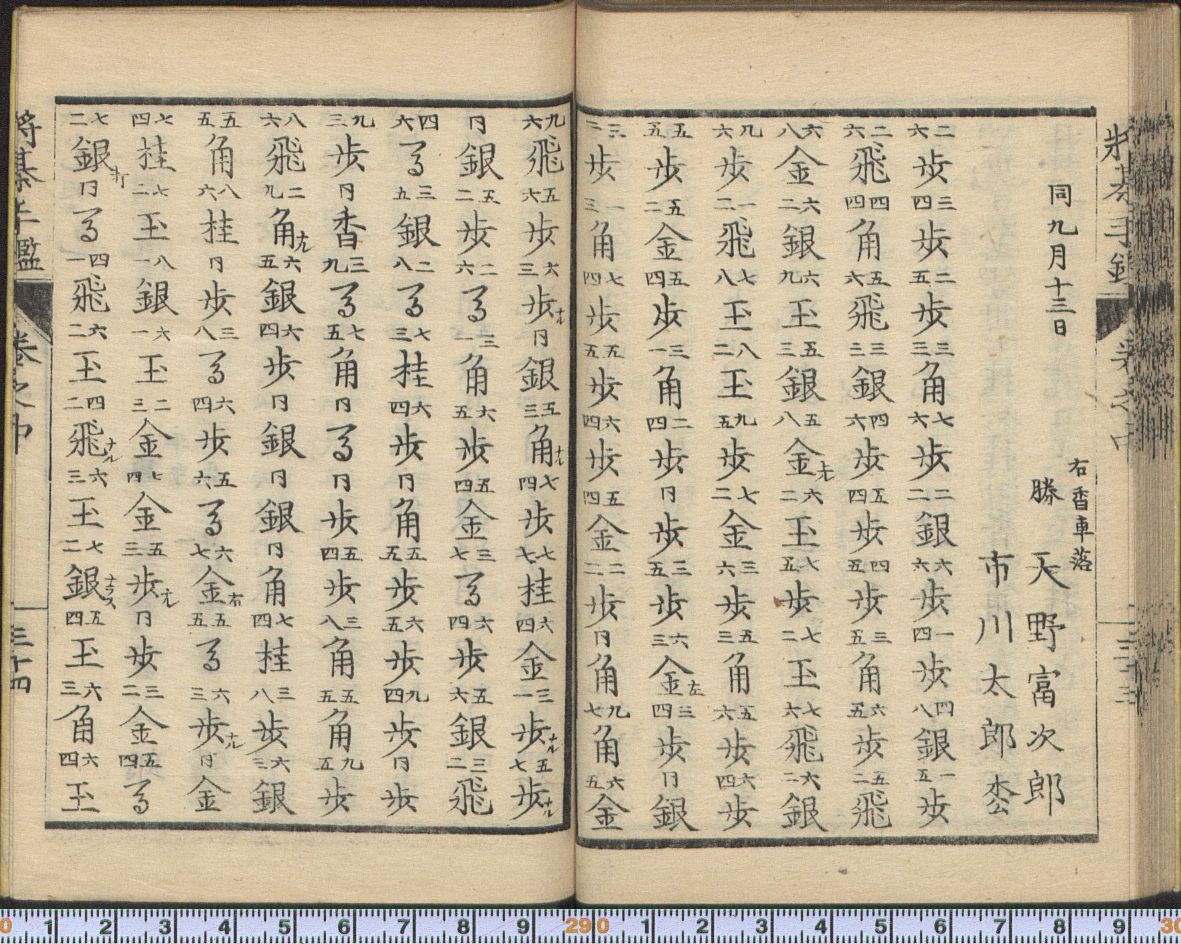 將棊手鑑　卷之中
同九月十三日
右香車落
勝　天野富次郎
市川太郎松
二六歩三四歩二五歩三三角七六歩二二銀六六歩一四歩四八銀一五歩
二六飛四四角五六飛三三銀四六歩五四歩四五歩三五角六五歩五二飛
六八金六二銀六九玉五三銀五八金右六二玉歩七二玉七六飛六二銀
九六歩一二飛七八玉八二玉九五歩七二金三六歩五三角五六歩六四歩
五五歩五二金五四歩三一角二四歩同歩三五歩六三金左三四歩同銀
三二歩一三角七四歩五五歩六四歩五四金二二歩同角九七角六五金
九六飛五六歩六三歩ナル同銀五三角ナル七四歩七七桂六四金三一歩ナル五七歩ナル
同銀五二歩二六馬三一角六五歩五四金三七馬六四歩五六銀三二飛
四六馬三五銀二八馬七三桂六四歩同角五五歩六五歩九四歩同歩
九三歩同香三九馬七五角同馬同歩五四歩三八角五五角九五歩
八六飛二九角ナル六五銀六四歩同銀同銀同角七四桂三八歩六三銀
五五角八六桂同歩三八馬六四歩五六馬六七金右五五馬六三歩ナル同金
七四桂七二玉八一銀六一玉二三金七四金五三歩ナル同歩三二金五四馬
七二銀打同馬四一飛六二玉四二飛ナル六三玉七二銀ナラス五四玉六三角六四玉
將棊手鑑　卷之中　三十四